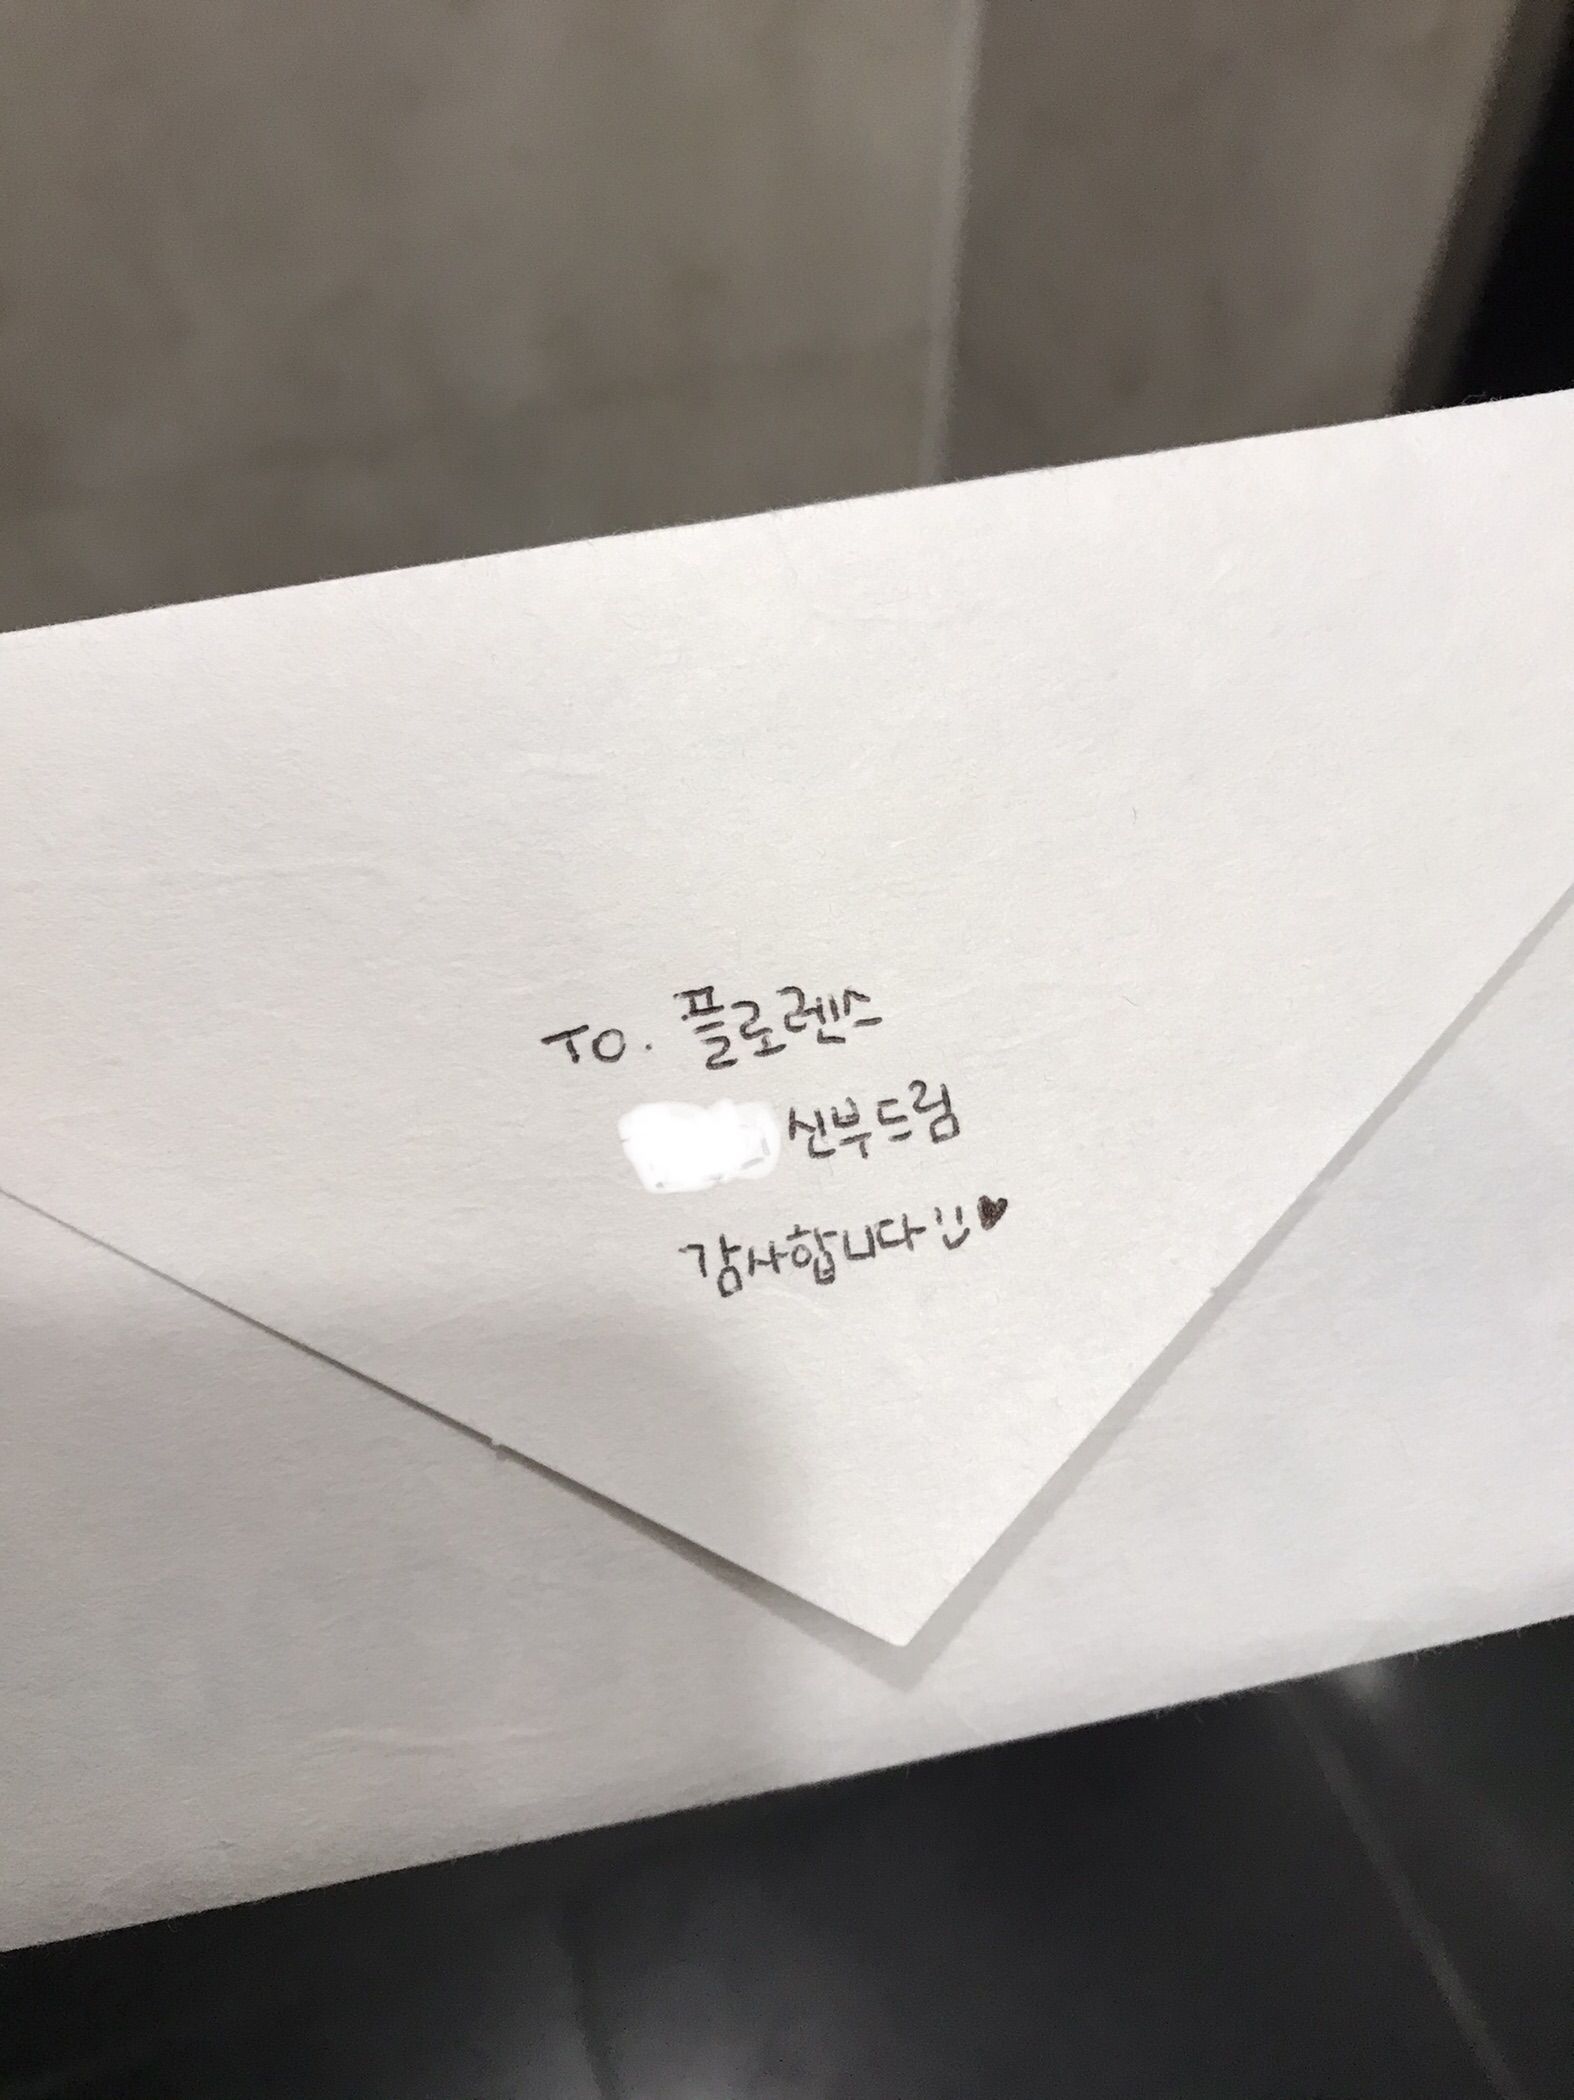 TO. 플로렌스
신부드림
감사합니다 :) ♥